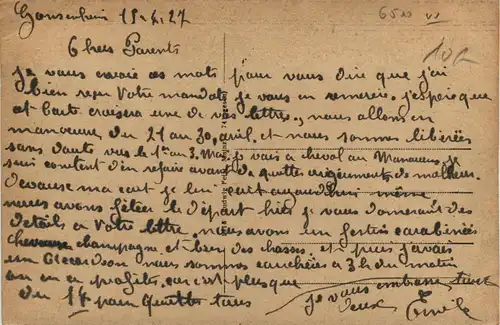 Gonsenheim 15-4-27
65 10
10f
Chers Parents
je vous envoie ces mots pour vous dire que j'ai
bien reçu votre mandat, je vous en remercie, j'espère que
cette carte croisera une de vos lettres, nous allons en
manoeuvre du 21 au 30 avril et nous sommes libérées
sans doute vers le 1er au 3 Mai, je vais a cheval au Manoeuvre, je
suis content d'en refaire avant de quitter régiment de malheur.
devance ma cart je leur écrit aujourd'hui même
nous avons fêtée le départ hier je vous donnerai des
détails a votre lettre, nous avons un festin carabinée
champagne et bien des chasses, et puis j'avais
un accordéon nous sommes couchées a 3h du matin
on en a profiter, car c'est plus que
du 17 pain quotidien
je vous embrasse tous
deux Emile